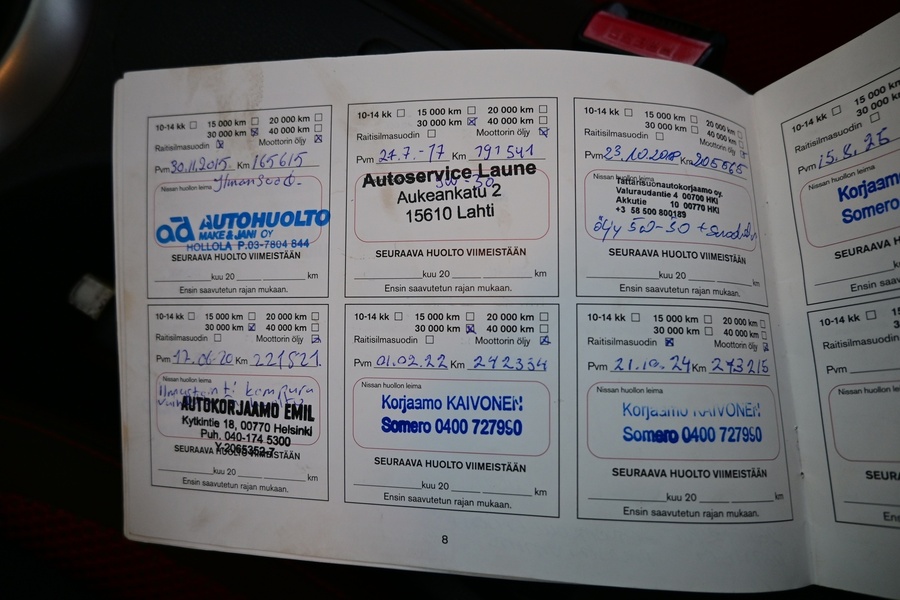 10-14 kk ☐ 15 000 km ☐ 20 000 km ☐
30 000 km ☒ 40 000 km ☒
Raitisilmasuodin ☒ Moottorin öljy ☒
Pvm 30.11.2015. Km 165615
Nissan huollon leima
ad AUTOHUOLTO
MAKE & JANI OY
HOLLOLA P.03-7804 844
SEURAAVA HUOLTO VIIMEISTÄÄN
kuu 20 km
Ensin saavutetun rajan mukaan.
10-14 kk ☐ 15 000 km ☐ 20 000 km ☐
30 000 km ☒ 40 000 km ☐
Raitisilmasuodin ☐ Moottorin öljy ☒
Pvm 27.7.-17 Km 191541
Autoservice Laune
Aukeankatu 2
15610 Lahti
SEURAAVA HUOLTO VIIMEISTÄÄN
kuu 20 km
Ensin saavutetun rajan mukaan.
10-14 kk ☐ 15 000 km ☐ 20 000 km ☐
30 000 km ☐ 40 000 km ☐
Raitisilmasuodin ☐ Moottorin öljy ☒
Pvm 23.10.2018 Km 205565
Nissan huollon leima
Tattarisuonautokorjaamo oy.
Valuraudantie 4 00700 HKI
Akkutie 10 00770 HKI
+3 58 500 800189
öljy 5w-30 +
SEURAAVA HUOLTO VIIMEISTÄÄN
kuu 20 km
Ensin saavutetun rajan mukaan.
10-14 kk ☐ 15 000 km ☐ 20 000 km ☐
30 000 km ☒ 40 000 km ☐
Raitisilmasuodin ☐ Moottorin öljy ☒
Pvm 17.06.20 Km 221521
Nissan huollon leima
AUTOKORJAAMO EMIL
Kytkintie 18, 00770 Helsinki
Puh. 040-174 5300
Y.2065352-7
SEURAAVA HUOLTO VIIMEISTÄÄN
kuu 20 km
Ensin saavutetun rajan mukaan.
10-14 kk ☐ 15 000 km ☐ 20 000 km ☐
30 000 km ☒ 40 000 km ☐
Raitisilmasuodin ☐ Moottorin öljy ☒
Pvm 01.02.22 Km 242334
Nissan huollon leima
Korjaamo KAIVONEN
Somero 0400 727990
SEURAAVA HUOLTO VIIMEISTÄÄN
kuu 20 km
Ensin saavutetun rajan mukaan.
10-14 kk ☐ 15 000 km ☐ 20 000 km ☐
30 000 km ☐ 40 000 km ☐
Raitisilmasuodin ☒ Moottorin öljy ☒
Pvm 21.10.24 Km 273215
Nissan huollon leima
Korjaamo KAIVONEN
Somero 0400 727990
SEURAAVA HUOLTO VIIMEISTÄÄN
kuu 20 km
Ensin saavutetun rajan mukaan.
8
10-14 kk ☐
Raitisilmasuodin ☐
Pvm 15.8.25
Nissan huollon
Korjaam
Somero
SEURAAVA
Ensin
10-14 kk ☐
Raitisilmasuodin ☐
Pvm
Nissan huollon leima
SEURAA
Ens